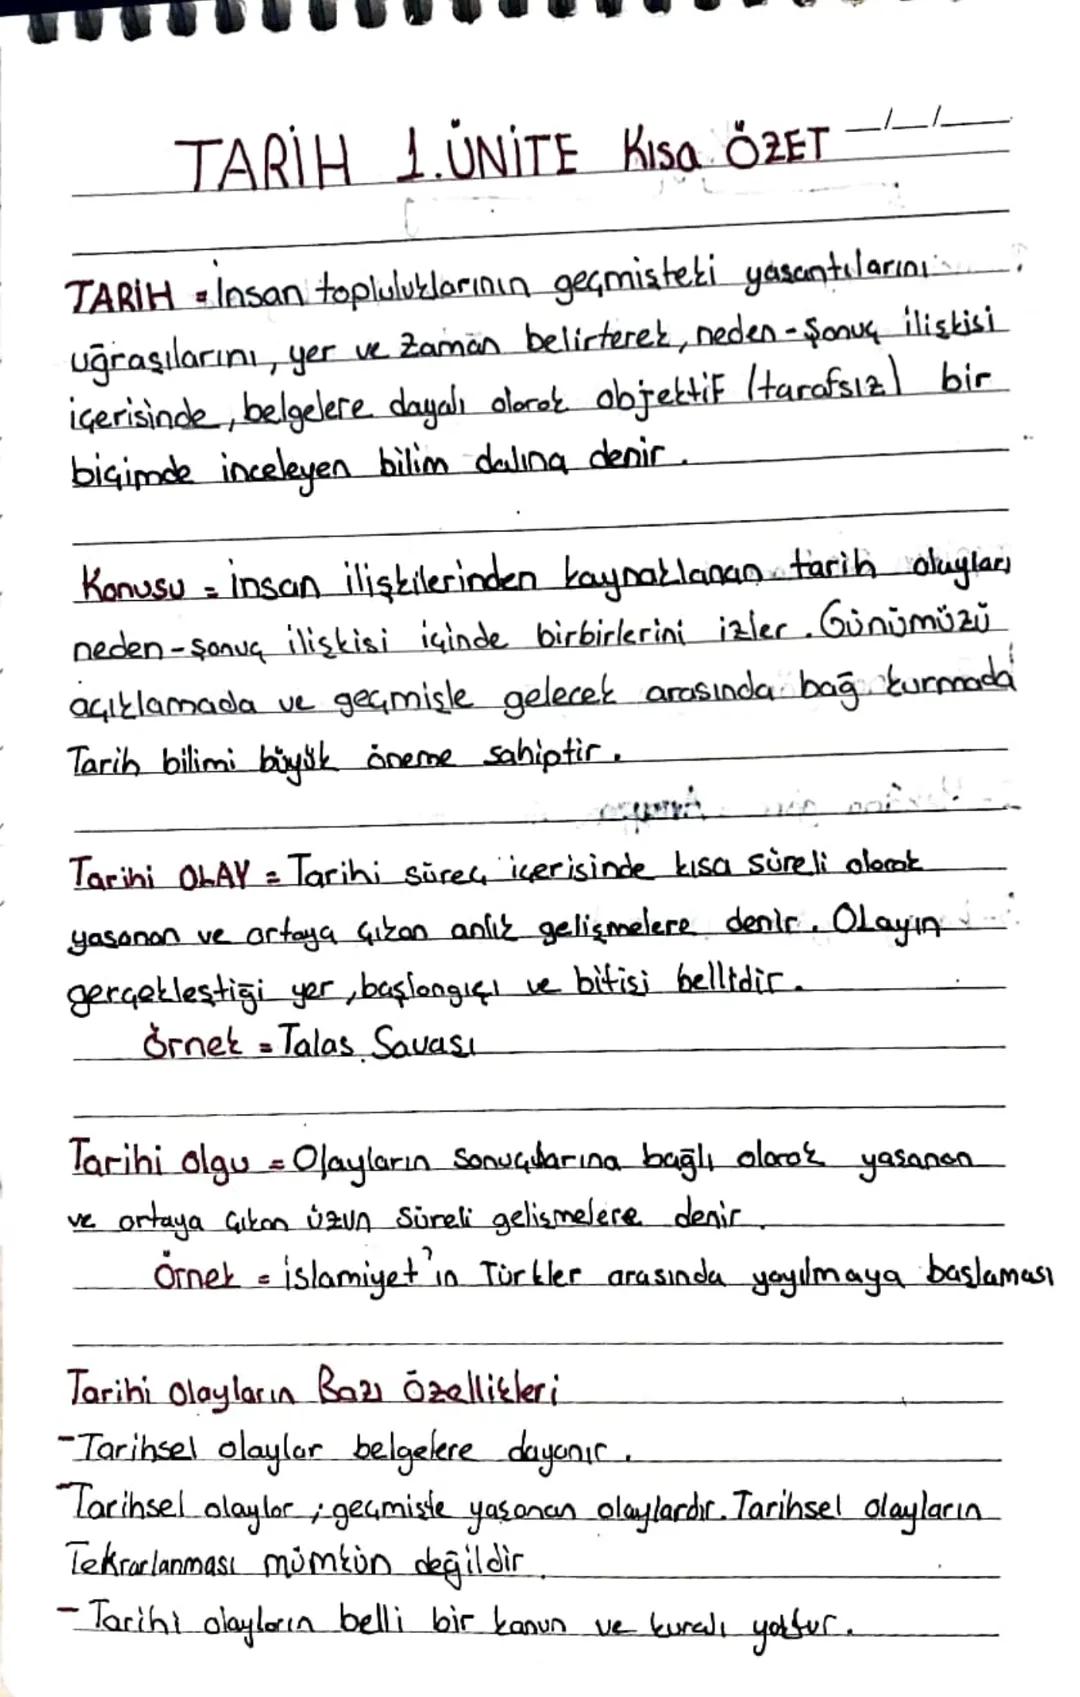 TARİH 1.ÜNİTE Kısa ÖZET _/_/_
TARİH = İnsan topluluklarının geçmişteki yaşantılarını
uğraşılarını, yer ve zaman belirterek, neden-sonuç ilişkisi
içerisinde, belgelere dayalı olarak objektif (tarafsız) bir
biçimde inceleyen bilim dalına denir.
Konusu = İnsan ilişkilerinden kaynaklanan tarih olayları
neden-sonuç ilişkisi içinde birbirlerini izler. Günümüzü
açıklamada ve geçmişle gelecek arasında bağ kurmada
Tarih bilimi büyük öneme sahiptir.
Tarihi OLAY = Tarihi süreç içerisinde kısa süreli olarak
yaşanan ve ortaya çıkan anlık gelişmelere denir. Olayın
gerçekleştiği yer, başlangıçı ve bitişi bellidir.
Örnek = Talas Savaşı
Tarihi olgu = Olayların sonuçlarına bağlı olarak yaşanan
ve ortaya çıkan uzun süreli gelişmelere denir.
Örnek = İslamiyet'in Türkler arasında yayılmaya başlaması
Tarihi olayların Bazı Özellikleri
- Tarihsel olaylar belgelere dayanır.
- Tarihsel olaylar; geçmişte yaşanan olaylardır. Tarihsel olayların
Tekrarlanması mümkün değildir.
- Tarihi olayların belli bir kanun ve kuralı yoktur.